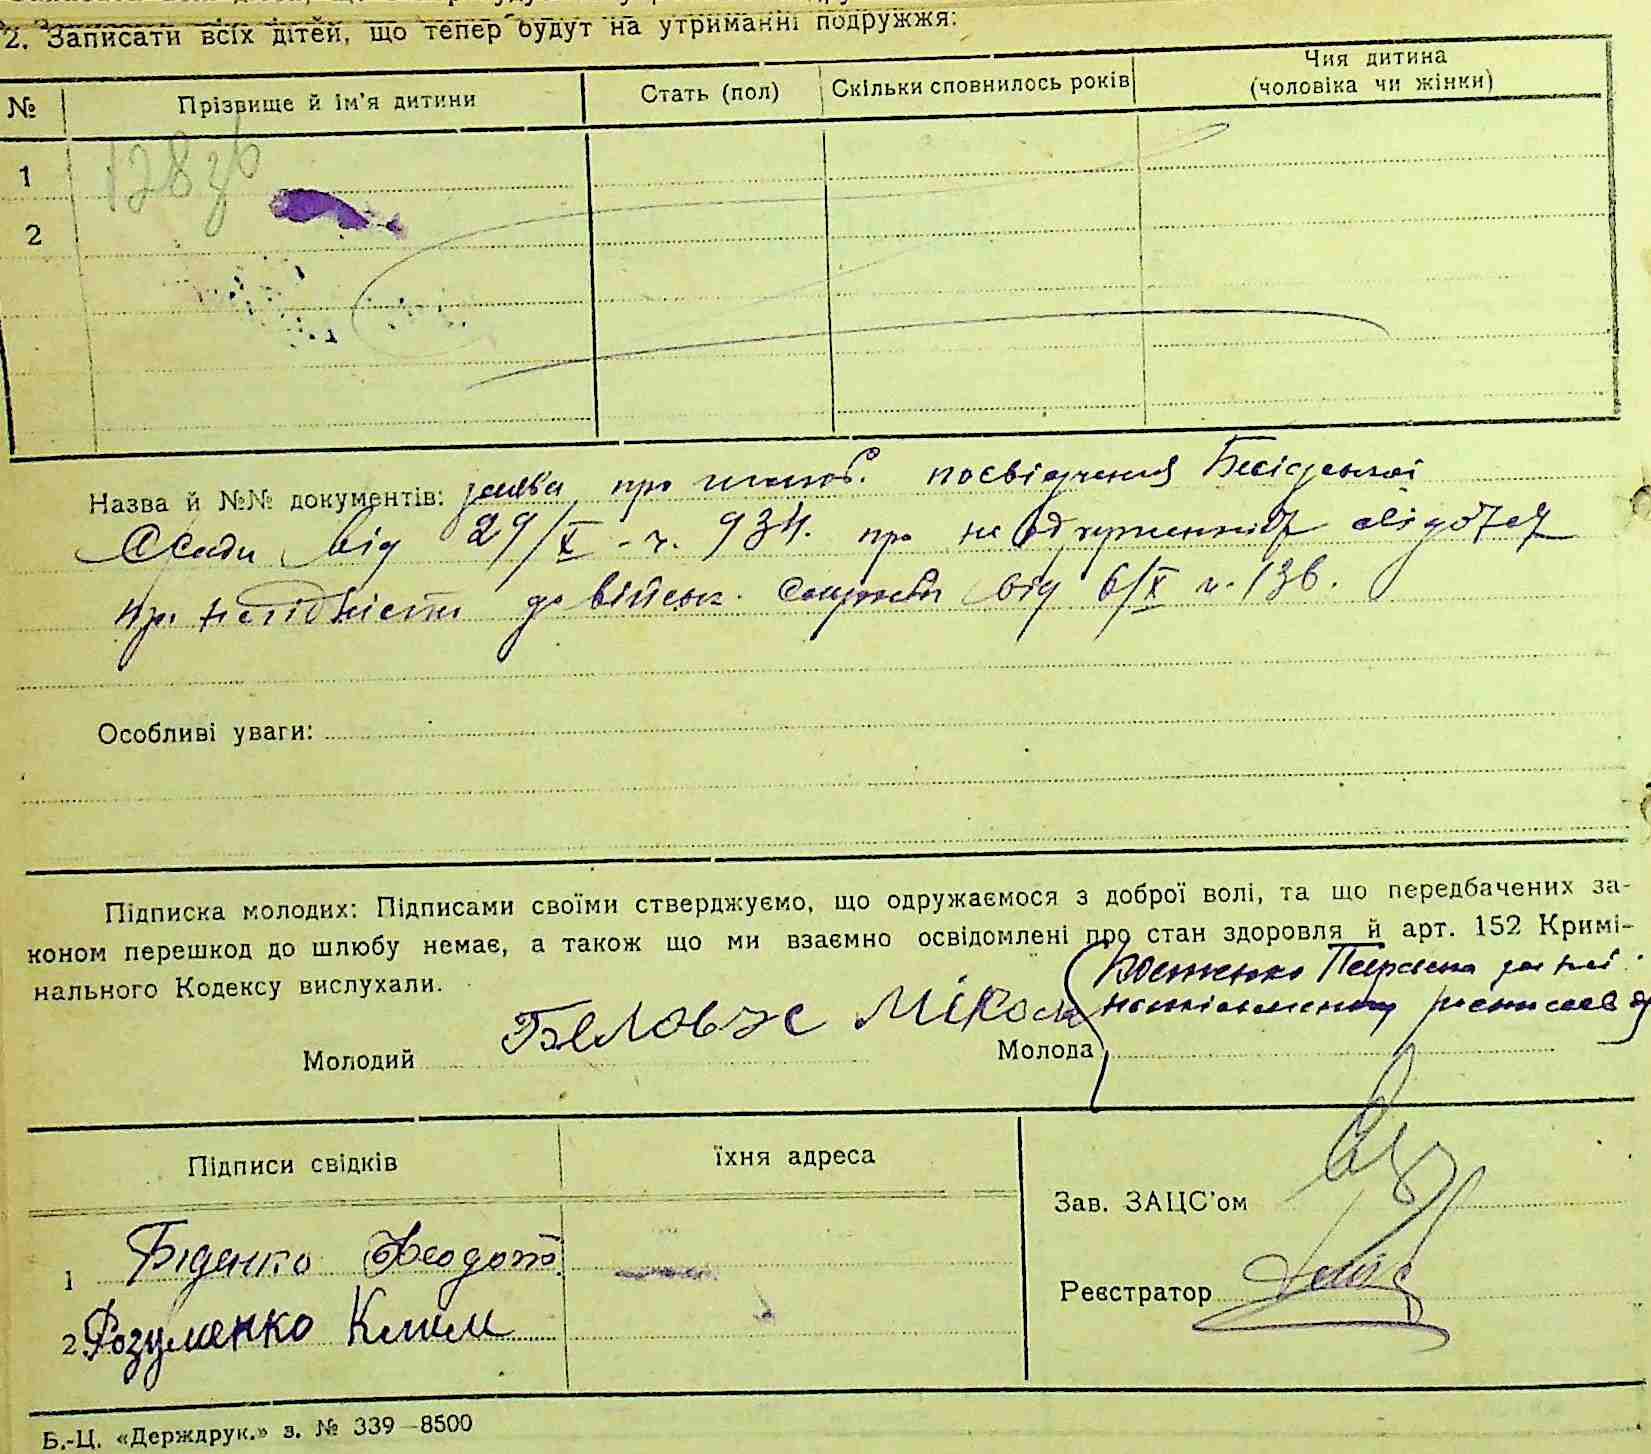 2. Записати всіх дітей, що тепер будут на утриманні подружжя:
№ Прізвище й ім'я дитини Стать (пол) Скільки сповнилось років Чия дитина (чоловіка чи жінки)
128зв
1
2
Назва й №№ документів: заява про шлюб. посвідчення
Ради від 29/X - ч. 934. про не
про негідність до військ. служби від 6/X ч. 136.
Особливі уваги:
Підписка молодих: Підписами своїми стверджуємо, що одружаємося з доброї волі, та що передбачених за-
коном перешкод до шлюбу немає, а також що ми взаємно освідомлені про стан здоровля й арт. 152 Кримі-
нального Кодексу вислухали.
за неї
неписьменну росписався
Молодий Біловус Мікола Молода
Підписи свідків їхня адреса
Зав. ЗАЦС'ом
1 Біденко Феодот
Реєстратор
2 Розуменко Клим
Б.-Ц. «Держдрук.» з. № 339—8500